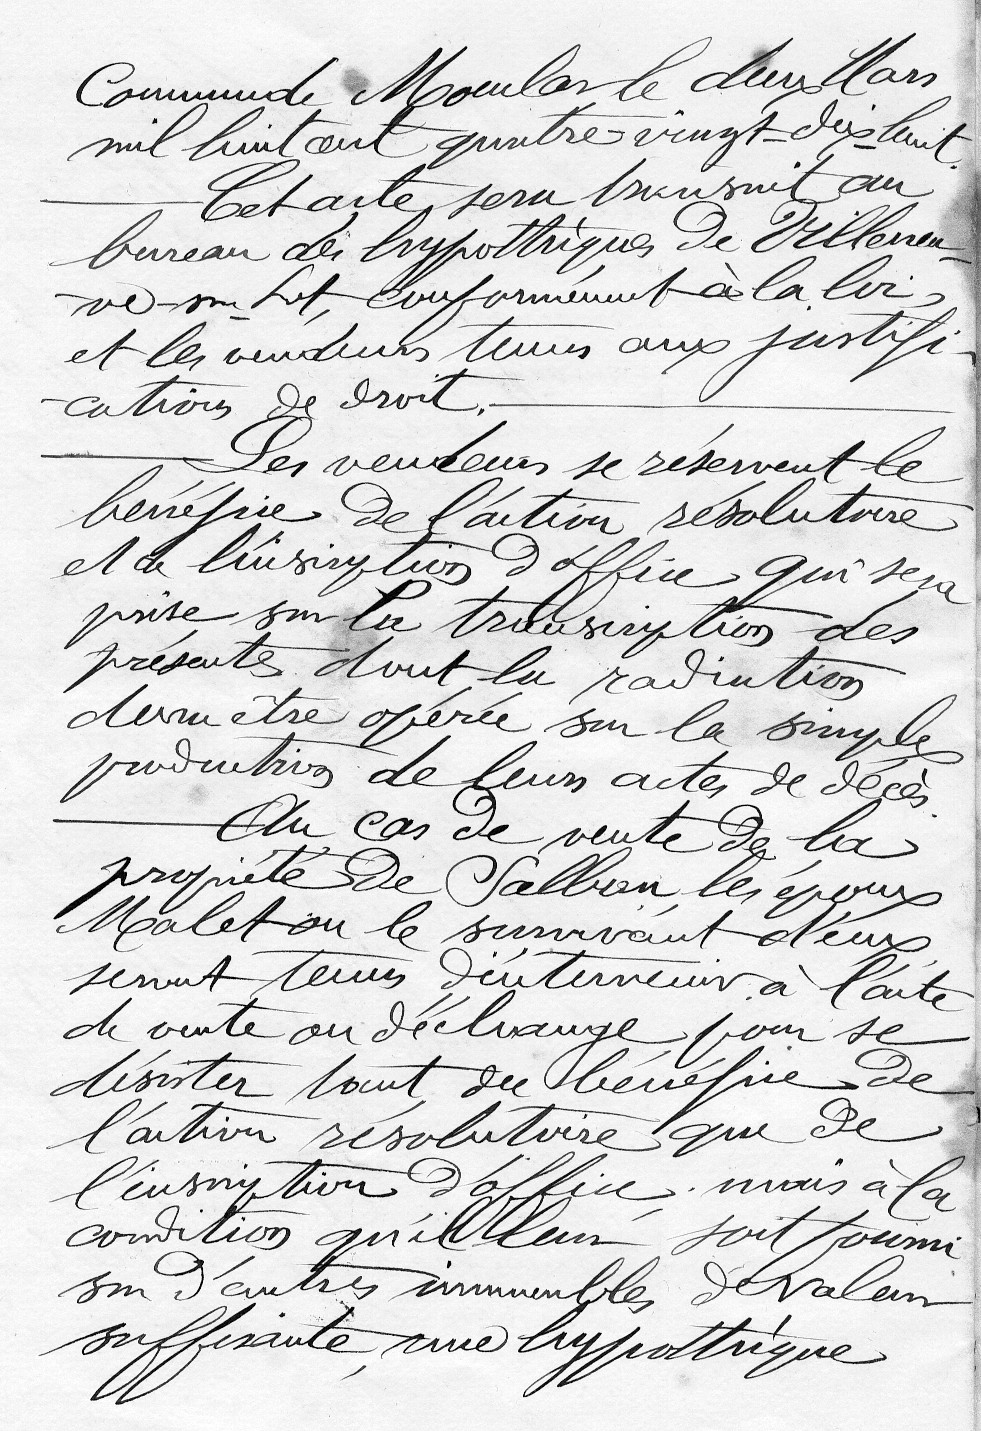 Commune de Moular le deux Mars
mil huit cent quatre-vingt-dix-huit.
Cet acte sera transmit au
bureau des hypothèques de Villeneu-
-ve-sur-Lot, conformément à la loi,
et les vendeurs tenus aux justifi-
-cations de droit.
Les vendeurs se réservent le
bénéfice de l'action résolutoire
et de l'inscription d'office qui sera
prise sur la transcription des
présentes dont la radiation
devra être opérée sur la simple
production de leurs actes de décès.
Au cas de vente de la
propriété de Salban les époux
Malet ou le survivant d'eux,
seront tenus d'intervenir à l'acte
de vente ou d'échange pour se
désister tant du bénéfice de
l'action résolutoire que de
l'inscription d'office, mais à la
condition qu'il leur soit fourni
sur d'autres immeubles de valeur
suffisante, une hypothèque